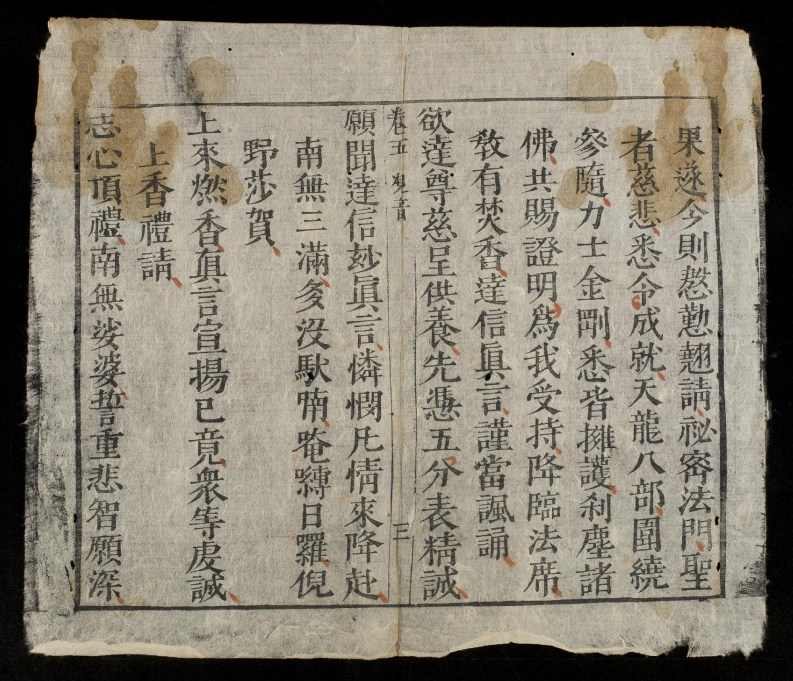 果遂今則慇懃翹請祕密法門聖
者慈悲悉令成就天龍八部圍繞
參隨力士金剛悉皆擁護刹塵諸
佛共賜證明爲我受持降臨法席
敎有焚香達信眞言謹當諷誦
欲達尊慈呈供養先憑五分表精誠
卷五 觀音 三
願聞達信妙眞言憐憫凡情來降赴
南無三滿多沒馱喃唵縛日羅倪
野莎賀
上來燃香眞言宣揚已竟衆等虔誠
上香禮請
志心頂禮南無娑婆誓重悲智願深